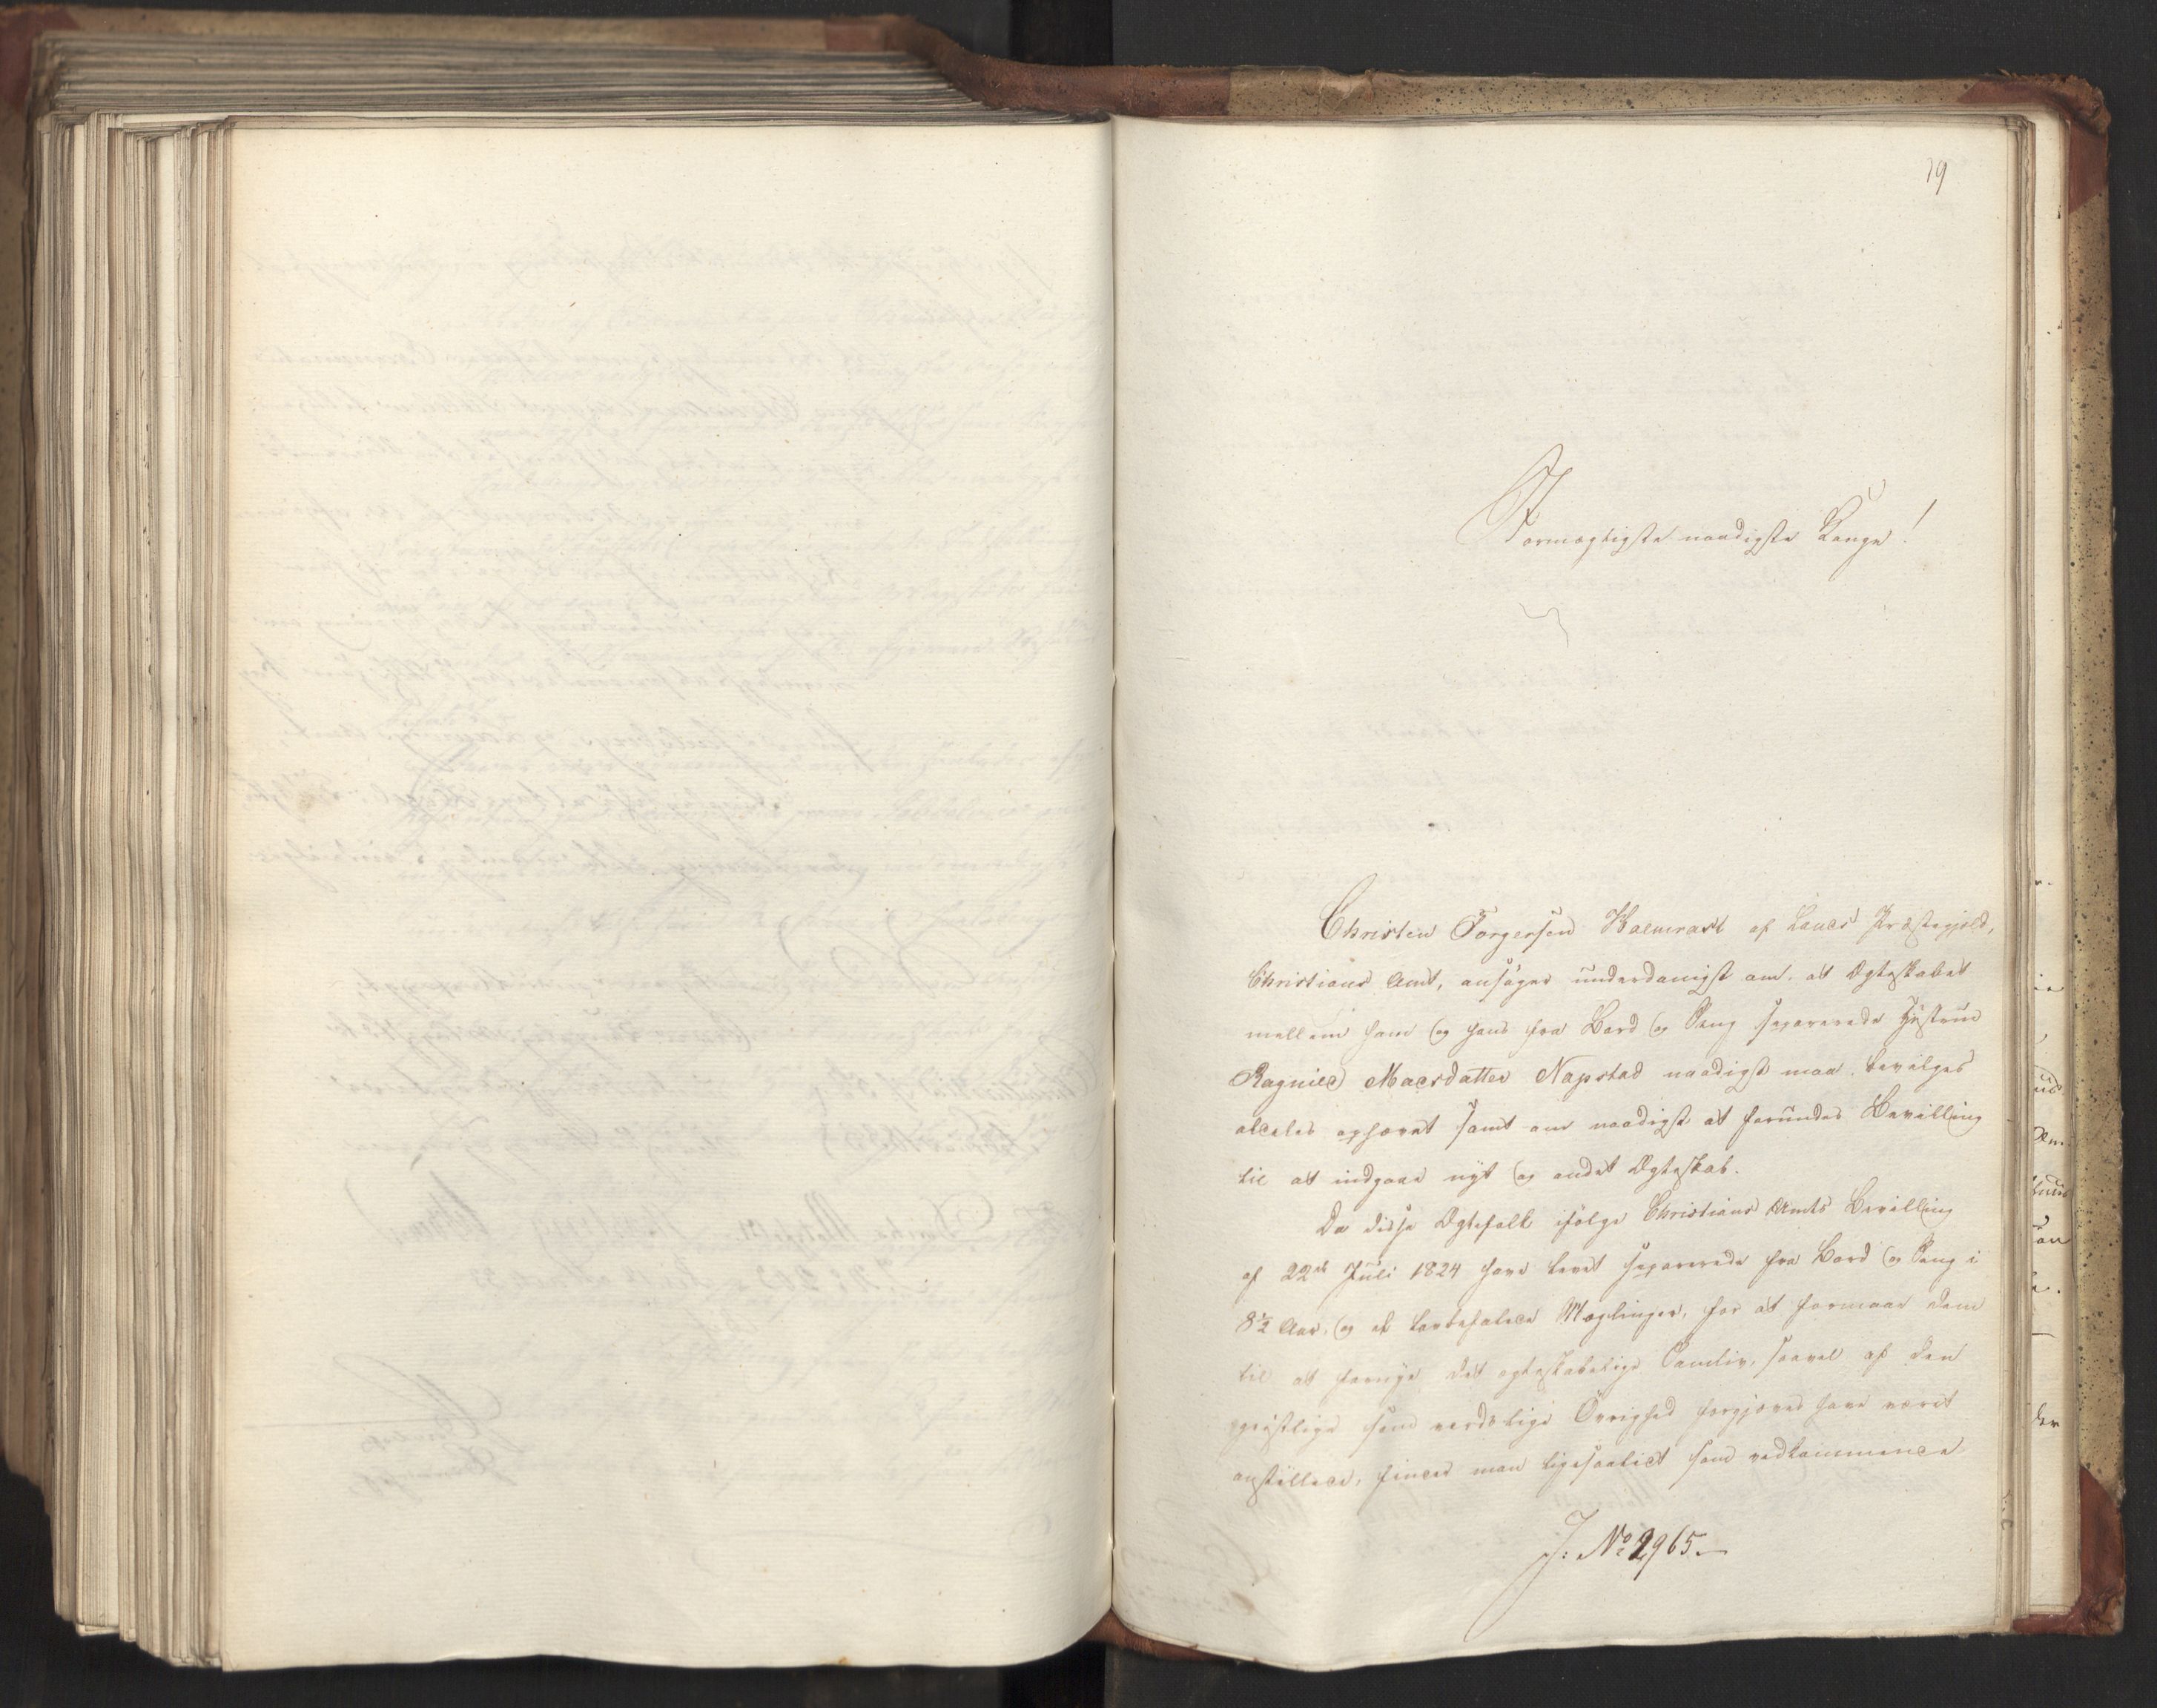 19
Formægtigste naadigste Konge!
Christen Torgersen Kalurast af Lands Præstegjeld,
Christians Amt, ansøger underdanigst om, at Ægteskabet
mellem ham og hans fra Bord og Seng separerede Hustrue
Ragnild Madsdatter Napstad naadigst maa bevilges
aldeles ophævet samt om naadigst at forundes Bevilling
til at indgaae nyt og andet Ægteskab.
Da disse Ægtefolk ifølge Christians Amts Bevilling
af 22de Juli 1824 have levet separerede fra Bord og Seng i
8½ Aar, og de lovbefalede Mæglinger, for at formaae dem
til at fornye det ægteskabelige Samliv, saavel af den
geistlige som verdslige Øvrighed forgjæves have været
anstillede, finder man ligesaalidt som vedkommende
J: No 2965.